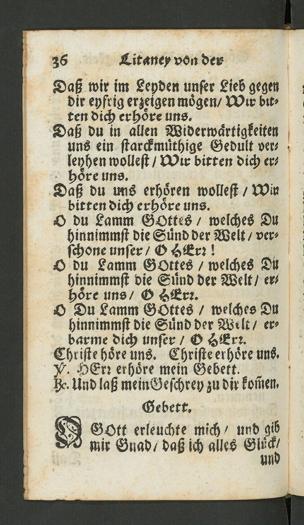 36 Litaney von der
Daß wir im Leyden unser Lieb gegen
dir eyfrig erzeigen mögen / Wir bit-
ten dich erhöre uns.
Daß du in allen Widerwärtigkeiten
uns ein starckmüthige Gedult ver-
leyhen wollest / Wir bitten dich er-
höre uns.
Daß du uns erhören wollest / Wir
bitten dich erhöre uns.
O du Lamm GOttes / welches Du
hinnimmst die Sünd der Welt / ver-
schone unser / O HErr !
O du Lamm GOttes / welches Du
hinnimmst die Sünd der Welt / er-
höre uns / O HErr.
O Du Lamm GOttes / welches Du
hinnimmst die Sünd der Welt / er-
barme dich unser / O HErr.
Christe höre uns. Christe erhöre uns.
℣. HErr erhöre mein Gebett.
℟. Und laß mein Geschrey zu dir kom̅en.
Gebett.
O GOtt erleuchte mich / und gib
mir Gnad / daß ich alles Glück /
und